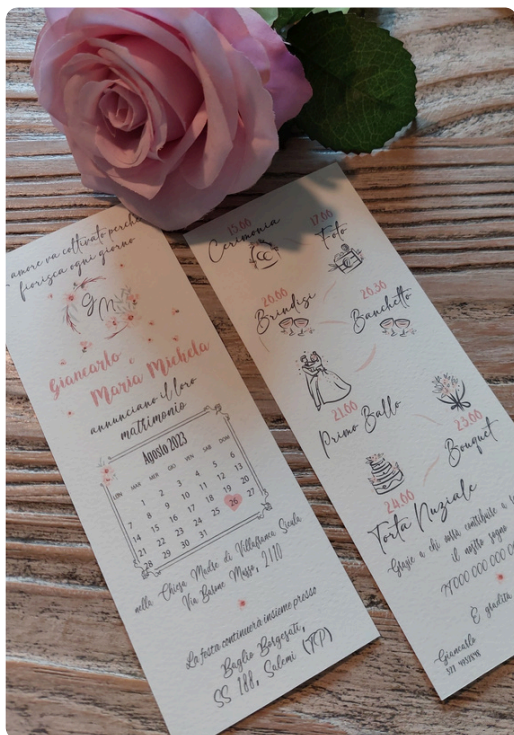 amore va coltivato perchè
fiorisca ogni giorno
G
M
Giancarlo e
Maria Michela
annunciano il loro
matrimonio
Agosto 2023
LUN MAR MER GIO VEN SAB DOM
1 2 3 4 5 6
7 8 9 10 11 12 13
14 15 16 17 18 19 20
21 22 23 24 25 26 27
28 29 30 31
nella Chiesa Madre di Villafranca Sicula
Via Barone Musso, 2110
La festa continuerà insieme presso
Baglio Borgesati,
SS 188, Salemi (TP)
15.00
Cerimonia
17.00
Foto
20.00
Brindisi
20.30
Banchetto
21.00
Primo Ballo
23.00
Bouquet
24.00
Torta Nuziale
Grazie a chi vorrà contribuire a
il nostro sogno
È gradita
~Giancarlo